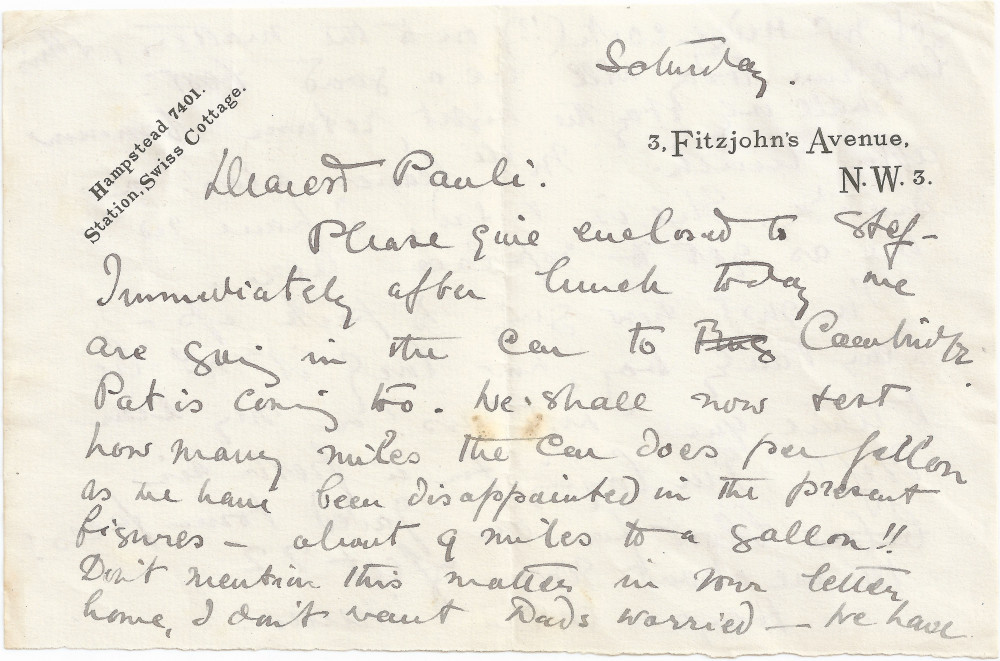 Saturday.
Hampstead 7401.
Station, Swiss Cottage.
3, Fitzjohn's Avenue,
N.W. 3.
Dearest Pauli.
Please give enclosed to Stef-
Immediately after lunch today we
are going in the car to Cambridge.
Pat is coming too. We shall now test
how many miles the car does per gallon
as we have been disappointed in the present
figures — about 9 miles to a gallon!!
Don't mention this matter in your letter
home, I don't want Dads worried — We have